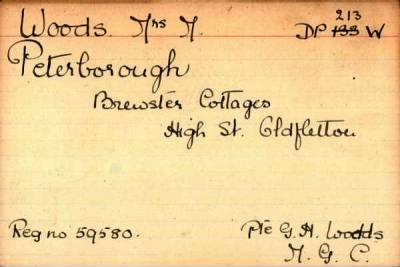 Woods. Mrs M. DP 133 213 W
Peterborough
Brewster Cottages
High St. Oldfletton
Reg no 59580.
Pte G. H. Woods
M. G. C.